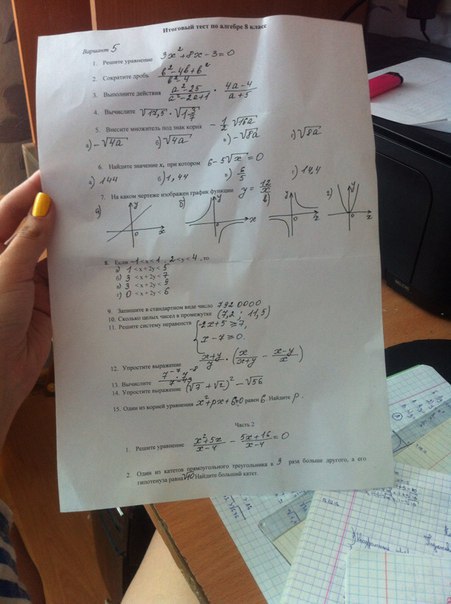 Итоговый тест по алгебре 8 класс
Вариант 5
1. Решите уравнение 3x² + 8x - 3 = 0
2. Сократите дробь
3. Выполните действия (a² - 25)/(a² - 2a + 1) · (4a - 4)/(a + 5)
4. Вычислите √17,5 · √(1 3/7)
5. Внесите множитель под знак корня - 1/2 √16a
а) -√4a б) √4a в) -√8a г) √8a
6. Найдите значение x, при котором 6 - 5√x = 0
а) 144 б) 1,44 в) 6/5 г) 14,4
7. На каком чертеже изображен график функции y = 12/x
а) y 0 x б) y 0 x в) y 0 x г) y 0 x
8. Если -1 < x < 1, 2 < y < 4, то
а) 1 < x + 2y < 5
б) 3 < x + 2y < 7
в) 3 < x + 2y < 9
г) 0 < x + 2y < 6
9. Запишите в стандартном виде число 7920000
10. Сколько целых чисел в промежутке (7,2; 11,5)
11. Решите систему неравенств { 2x + 5 ≥ 7,
x - 7 ≥ 0.
12. Упростите выражение (x + y)/y · (x/(x + y) - (x - y)/x)
13. Вычислите
14. Упростите выражение (√7 + √2)² - √56
15. Один из корней уравнения x² + px + 60 = 0 равен 6. Найдите p.
Часть 2
1. Решите уравнение (x² + 5x)/(x - 4) - (5x + 16)/(x - 4) = 0
2. Один из катетов прямоугольного треугольника в 3 раза больше другого, а его
гипотенуза равна √10. Найдите больший катет.